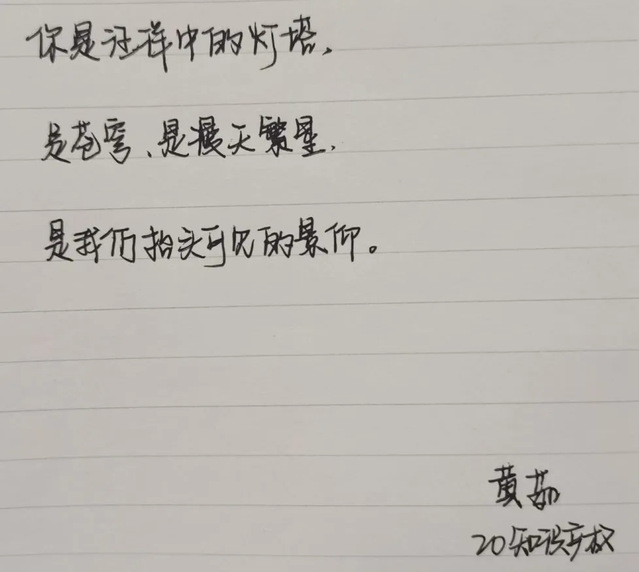 你是汪洋中的灯塔,
是苍穹、是漫天繁星,
是我们抬头可见的景仰。
黄茹
20知识产权